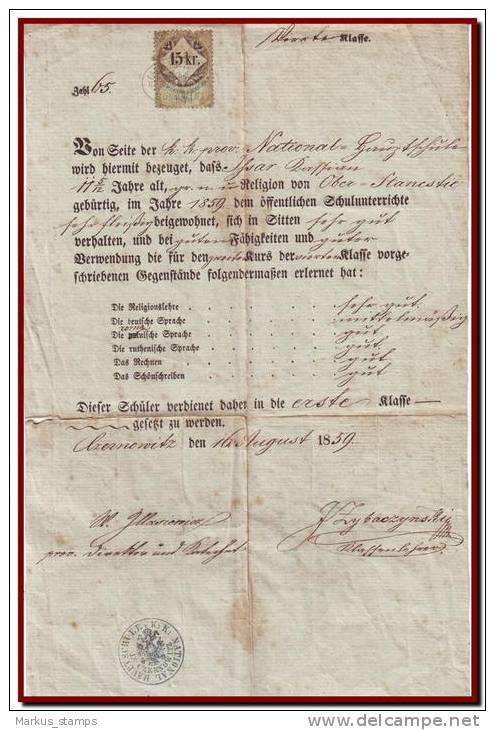 Vierte Klasse.
15 kr.
Zahl 65.
Von Seite der k. k. prov. National-Hauptschule
wird hiermit bezeuget, dass Issar Cassian
11 Jahre alt, gr. n. u. Religion von Ober-Stanestie
gebürtig, im Jahre 1859 dem öffentlichen Schulunterrichte
sehr fleißig beigewohnet, sich in Sitten sehr gut
verhalten, und bei guten Fähigkeiten und guter
Verwendung die für den zweiten Kurs der vierten Klasse vorge-
schriebenen Gegenstände folgendermaßen erlernet hat:
Die Religionslehre . . . . . . . sehr gut.
Die deutsche Sprache . . . . . . . mittelmäßig
roma
Die nische Sprache . . . . . . . gut
Die ruthenische Sprache . . . . . . . gut.
Das Rechnen . . . . . . . gut
Das Schönschreiben . . . . . . . gut
Dieser Schüler verdienet daher in die erste Klasse
gesetzt zu werden.
Czernowitz den 16 August 1859.
prov. Direktor und Katechet
Klassenlehrer
K. K. NATIONAL HAUPTSCHULE
Markus_stamps
delcampe.net